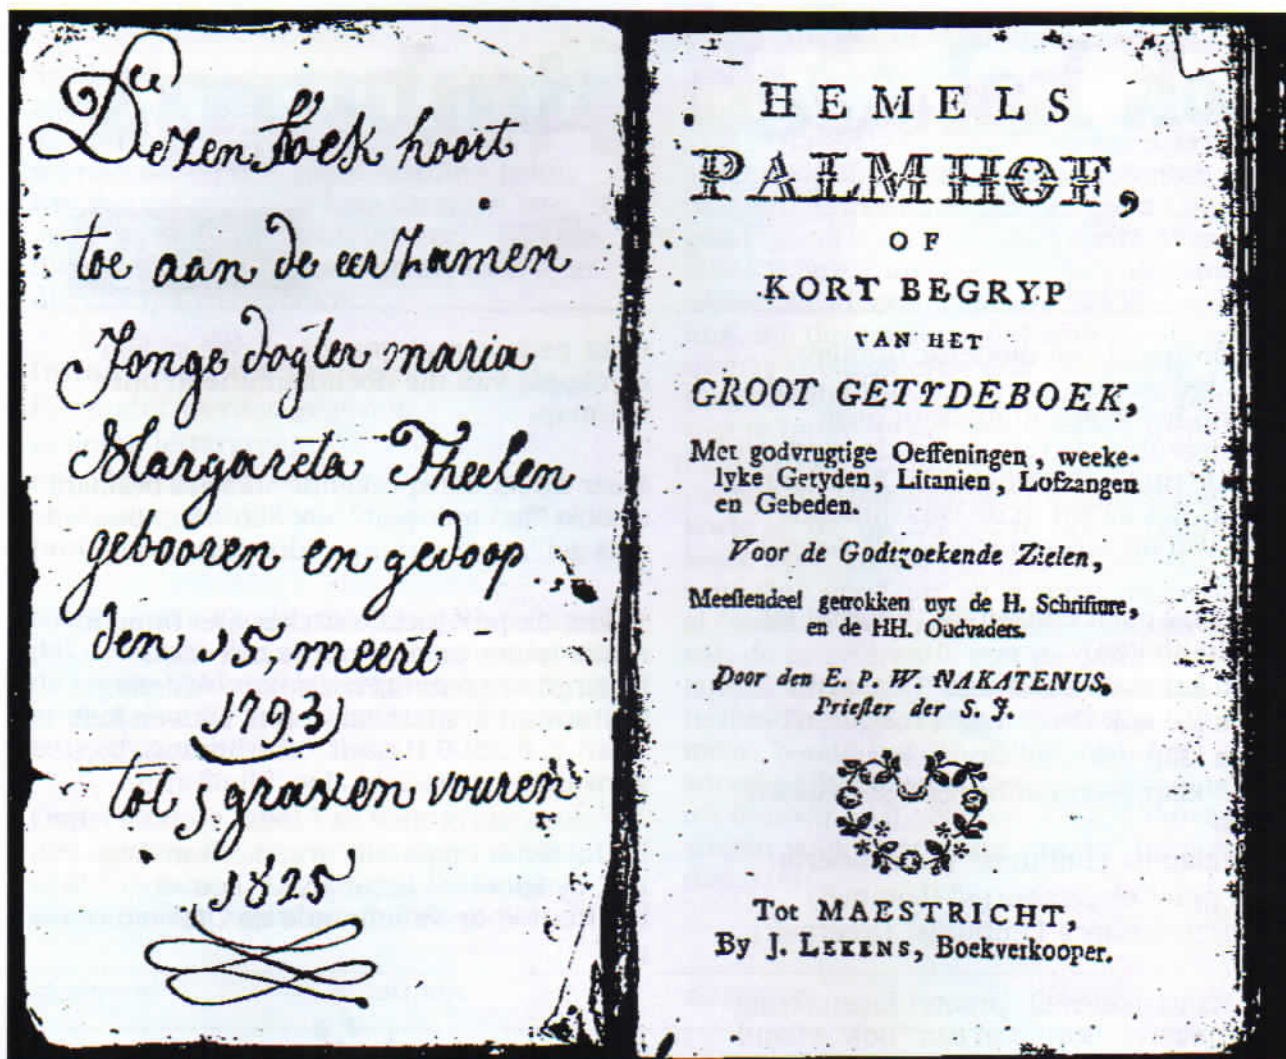 Dezen boek hoort
toe aan de eerzamen
Jonge dogter maria
Margareta Theelen
gebooren en gedoop
den 25, meert
1793
tot s graven vouren
1825
HEMELS
PALMHOF,
OF
KORT BEGRYP
VAN HET
GROOT GETYDEBOEK,
Met godvrugtige Oeffeningen, weeke-
lyke Getyden, Litanien, Lofzangen
en Gebeden.
Voor de Godtzoekende Zielen,
Meestendeel getrokken uyt de H. Schrifture,
en de HH. Oudvaders.
Door den E. P. W. NAKATENUS,
Priester der S. J.
Tot MAESTRICHT,
By J. LEKENS, Boekverkooper.